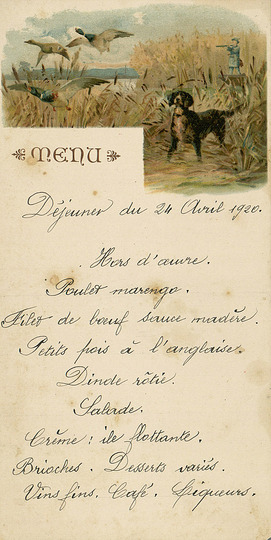 MENU
Déjeuner du 24 Avril 1920.
Hors d'œuvre.
Poulet marengo.
Filet de bœuf sauce madère.
Petits pois à l'anglaise.
Dinde rôtie.
Salade.
Crême : ile flottante.
Brioches. Desserts variés.
Vins fins. Café. Liqueurs.